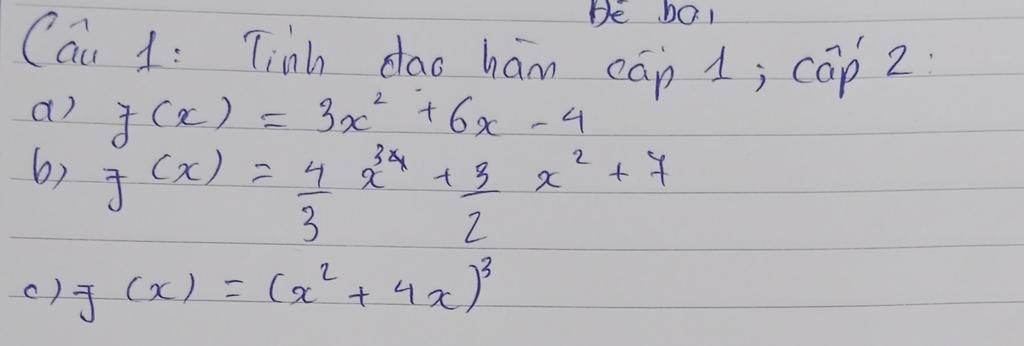 Đề bài
Câu 1: Tính đạo hàm cấp 1; cấp 2:
a) f(x) = 3x² + 6x - 4
b) f(x) = 4/3 x³ + 3/2 x² + 7
c) f(x) = (x² + 4x)³